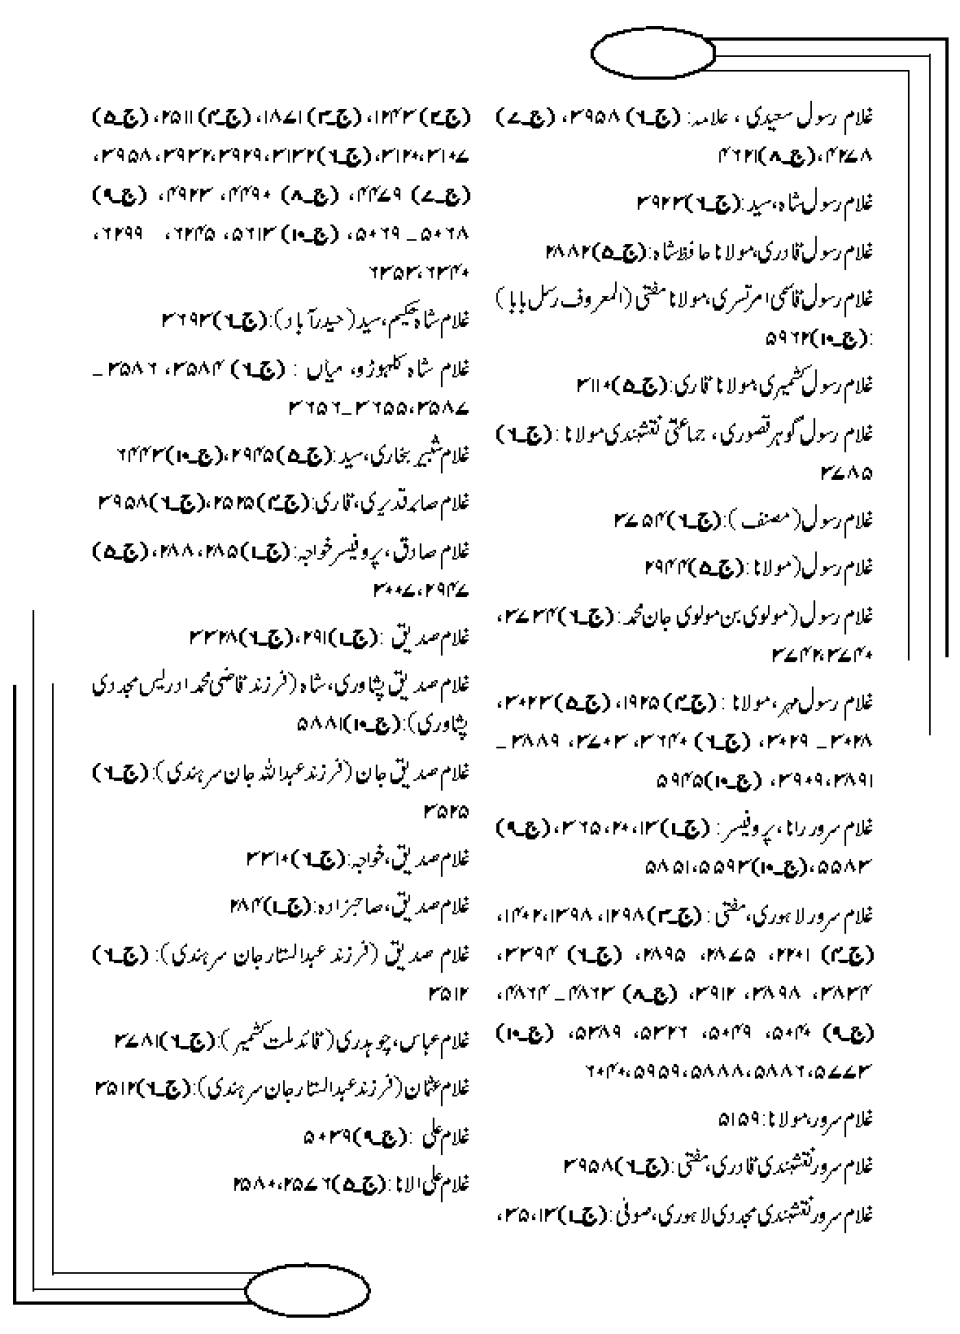 غلام رسول سعیدی ، علامہ: (ج۔۶) ۳۹۵۸، (ج۔۷)
۴۲۷۸،(ج۔۸)۴۶۲۱
غلام رسول شاہ،سید:(ج۔۶)۳۹۲۳
غلام رسول قادری،مولانا حافظ شاہ:(ج۔۵)۲۸۸۲
غلام رسول قاسمی امرتسری،مولانا مفتی (المعروف رسل بابا)
:(ج۔۱۰)۵۹۶۲
غلام رسول کشمیری،مولانا قاری:(ج۔۵)۳۱۱۰
غلام رسول گوہر قصوری ، جماعتی نقشبندی مولانا :(ج۔۶)
۳۷۸۵
غلام رسول( مصنف ):(ج۔۶)۳۷۵۴
غلام رسول(مولانا:(ج۔۵)۲۹۴۴
غلام رسول (مولوی بن مولوی جان محمد:(ج۔۶)۳۷۳۴،
۳۷۴۲،۳۷۴۰
غلام رسول مہر،مولانا : (ج۔۴)۱۹۲۵، (ج۔۵)۳۰۲۳،
۳۰۲۸ _ ۳۰۲۹، (ج۔۶) ۳۶۴۰، ۳۷۰۳، ۳۸۸۹ _
۳۸۹۱،۳۹۰۹، (ج۔۱۰)۵۹۴۵
غلام سرور رانا،پروفیسر: (ج۔۱)۱۳،۲۰، ۳۶۵،(ج۔۹)
۵۵۸۳،(ج۔۱۰)۵۵۹۳،۵۸۵۱
غلام سرور لاہوری،مفتی : (ج۔۳)۱۲۹۸، ۱۳۹۸،۱۴۰۲،
(ج۔۴) ۲۲۰۱، ۲۸۷۵، ۲۸۹۵، (ج۔۶) ۳۳۹۴،
۳۸۳۴، ۳۸۹۸، ۳۹۱۲، (ج۔۸) ۴۸۶۳ _ ۴۸۶۴،
(ج۔۹) ۵۰۴۰، ۵۰۴۹، ۵۳۲۶، ۵۳۸۹، (ج۔۱۰)
۵۷۷۳،۵۸۸۶،۵۸۸۸،۵۹۵۹،۶۰۴۰
غلام سرور،مولانا:۵۱۵۹
غلام سرور نقشبندی قادری،مفتی:(ج۔۶)۳۹۵۸
غلام سرور نقشبندی مجددی لاہوری،صوفی:(ج۔۱)۱۳،۳۵،
(ج۔۲)۱۲۴۳، (ج۔۳)۱۸۷۱،(ج۔۴)۲۵۱۱،(ج۔۵)
۳۱۰۷،۳۱۲۰،(ج۔۶)۳۱۳۲،۳۹۲۹،۳۹۳۲،۳۹۵۸،
(ج۔۷) ۴۴۷۹، (ج۔۸) ۴۴۹۰، ۴۹۲۳، (ج۔۹)
۵۰۶۸ _ ۵۰۶۹، (ج۔۱۰)۵۶۱۳، ۶۲۴۵، ۶۲۹۹،
۶۳۵۳،۶۳۴۰
غلام شاہ حکیم،سید(حیدرآباد):(ج۔۶)۳۶۹۳
غلام شاہ کلہوڑو، میاں : (ج۔۶) ۳۵۸۴، ۳۵۸۶ _
۳۵۸۷،۳۶۵۵_۳۶۵۶
غلام شبیر بخاری،سید:(ج۔۵)۲۹۴۵،(ج۔۱۰)۶۴۴۳
غلام صابر قدیری،قاری:(ج۔۴)۲۵۲۵،(ج۔۶)۳۹۵۸
غلام صادق، پروفیسر خواجہ:(ج۔۱)۲۸۵،۲۸۸،(ج۔۵)
۲۹۴۷،۳۰۰۷
غلام صدیق :(ج۔۱)۲۹۱،(ج۔۶)۳۳۲۸
غلام صدیق پشاوری، شاہ (فرزند قاضی محمد ادریس مجددی
پشاوری):(ج۔۱۰)۵۸۸۱
غلام صدیق جان (فرزند عبداللہ جان سرہندی):(ج۔۶)
۳۵۲۵
غلام صدیق،خواجہ:(ج۔۶)۳۳۱۰
غلام صدیق،صاحبزادہ:(ج۔۱)۲۸۴
غلام صدیق (فرزند عبدالستار جان سرہندی): (ج۔۶)
۳۵۱۲
غلام عباس،چوہدری(قائد ملت کشمیر ):(ج۔۶)۳۷۸۱
غلام عثمان(فرزند عبدالستار جان سرہندی):(ج۔۶)۳۵۱۲
غلام علی :(ج۔۹)۵۰۳۹
غلام علی الانا:(ج۔۵)۲۵۷۶،۲۵۸۰